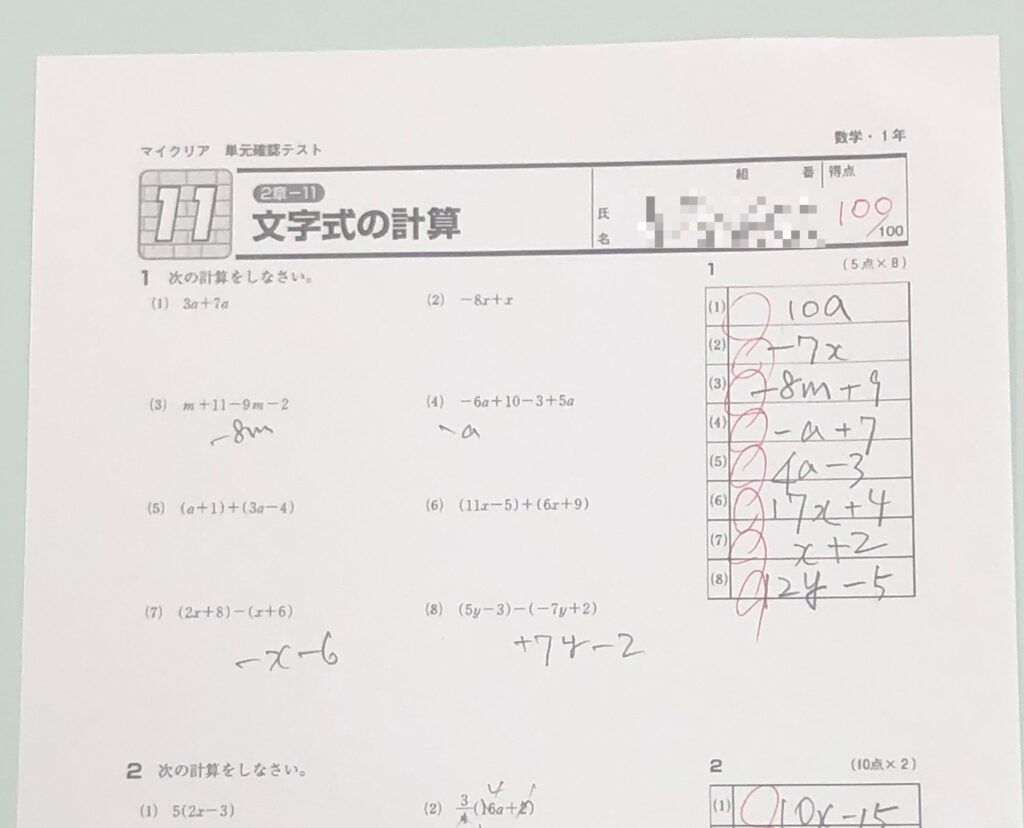 数学・1年
マイクリア 単元確認テスト
11
2章-11
文字式の計算
組 番
氏名
得点
100
/100
1 次の計算をしなさい。
(1) 3a+7a
(2) -8x+x
(3) m+11-9m-2
-8m
(4) -6a+10-3+5a
-a
(5) (a+1)+(3a-4)
(6) (11x-5)+(6x+9)
(7) (2x+8)-(x+6)
-x-6
(8) (5y-3)-(-7y+2)
+7y-2
1 (5点×8)
(1) 10a
(2) -7x
(3) -8m+9
(4) -a+7
(5) 4a-3
(6) 17x+4
(7) x+2
(8) 12y-5
2 次の計算をしなさい。
(1) 5(2x-3)
(2) 3/4(16a+2)
4 1
2 (10点×2)
(1) 10x-15